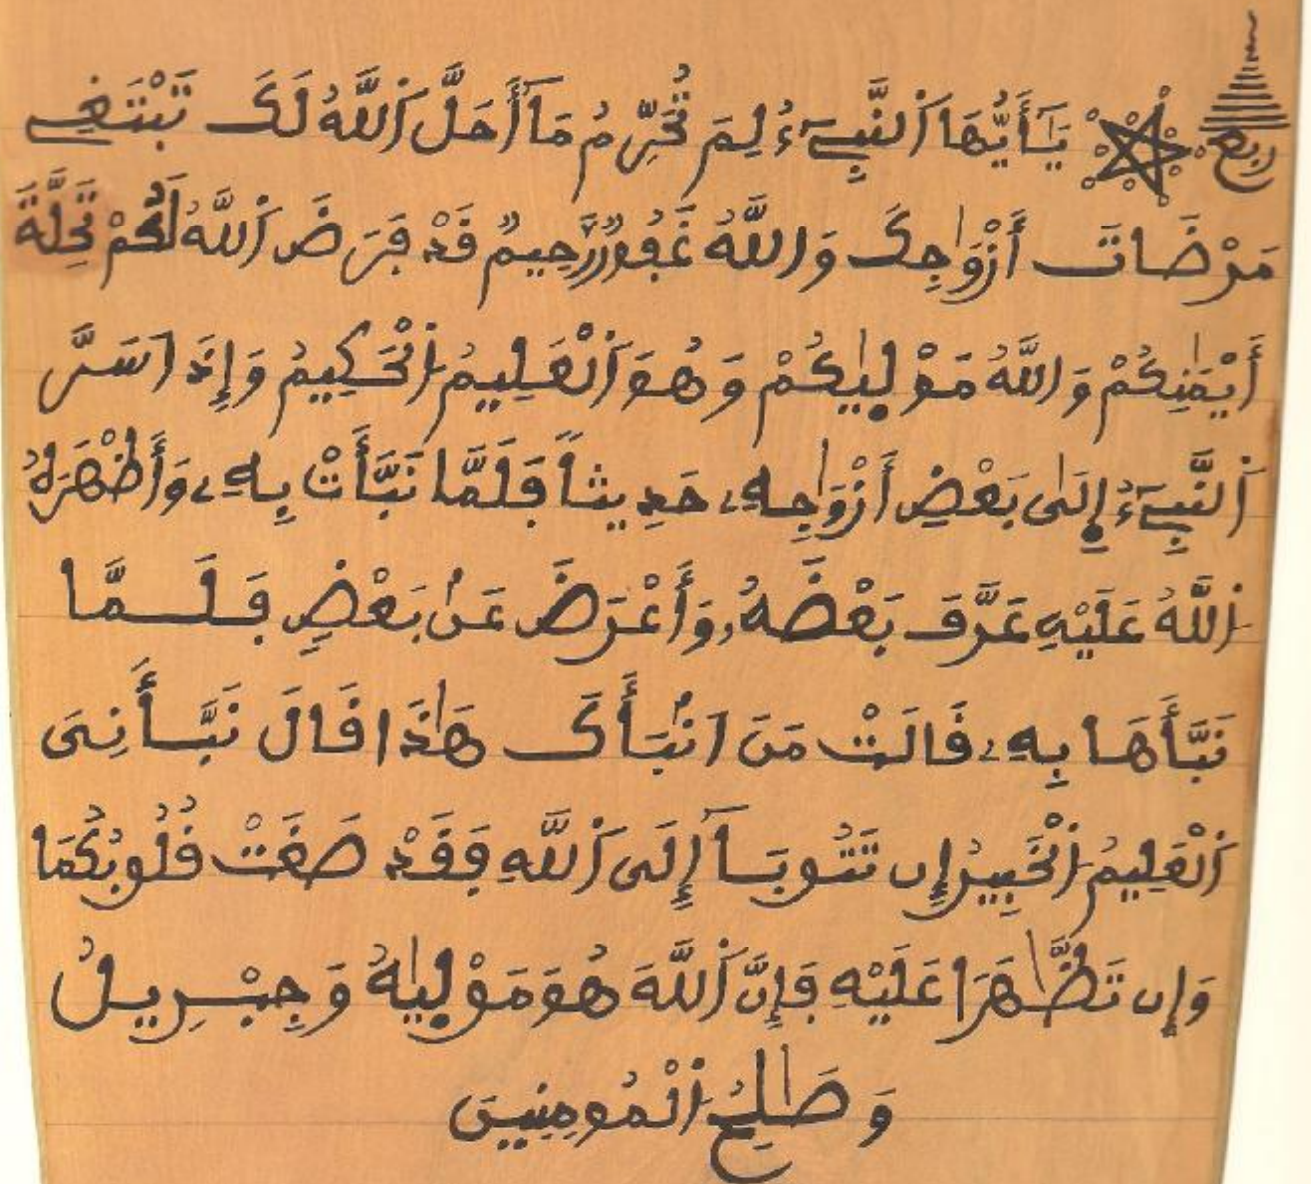 ربع يَٰٓأَيُّهَا اَ۬لنَّبِےٓءُ لِمَ تُحَرِّمُ مَآ أَحَلَّ اَ۬للَّهُ لَكَ تَبْتَغِے
مَرْضَاتَ أَزْوَٰجِكَ وَاللَّهُ غَفُورٞ رَّحِيمٞ قَدْ فَرَضَ اَ۬للَّهُ لَكُمْ تَحِلَّةَ
أَيْمَٰنِكُمْ وَاللَّهُ مَوْل۪يٰكُمْ وَهُوَ اَ۬لْعَلِيمُ اُ۬لْحَكِيمُ وَإِذَ اَسَرَّ
اَ۬لنَّبِےٓءُ اِ۪لَىٰ بَعْضِ أَزْوَٰجِهِۦ حَدِيثاً فَلَمَّا نَبَّأَتْ بِهِۦ وَأَظْهَرَهُ
اُ۬للَّهُ عَلَيْهِ عَرَّفَ بَعْضَهُۥ وَأَعْرَضَ عَنۢ بَعْضٍ فَلَمَّا
نَبَّأَهَا بِهِۦ قَالَتْ مَنَ اَنۢبَأَكَ هَٰذَا قَالَ نَبَّأَنِىَ
اَ۬لْعَلِيمُ اُ۬لْخَبِيرُ إِن تَتُوبَآ إِلَى اَ۬للَّهِ فَقَدْ صَغَتْ قُلُوبُكُمَا
وَإِن تَظَّٰهَرَا عَلَيْهِ فَإِنَّ اَ۬للَّهَ هُوَ مَوْل۪يٰهُ وَجِبْرِيلُ
وَصَٰلِحُ اُ۬لْمُومِنِينَ